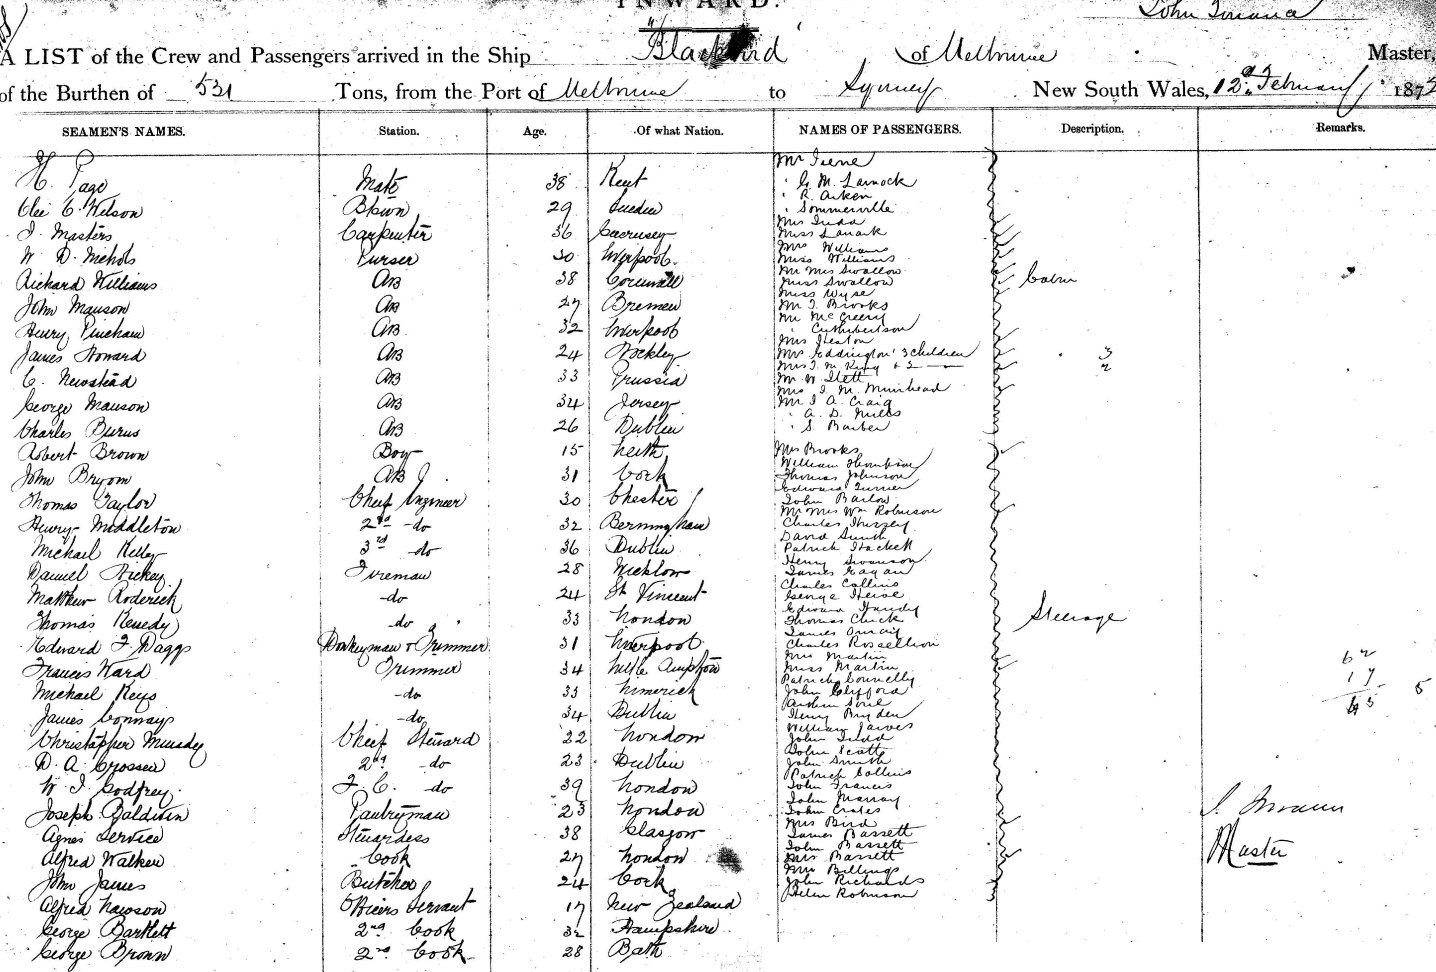 INWARD.
"Blackbird"
A LIST of the Crew and Passengers arrived in the Ship of Melbourne Master,
of the Burthen of 531 Tons, from the Port of Melbourne to Sydney New South Wales, 12th February 187
SEAMEN'S NAMES. Station. Age. Of what Nation. NAMES OF PASSENGERS. Description. Remarks.
H. Page Mate 38 Kent
Wilson 29 Sweden
J. Masters Carpenter 36 Guernsey
W. D. Nichols Purser 30 Liverpool
Richard Williams AB 38 Cornwall
John Manson AB 27 Bremen
Henry Pincham AB 32 Liverpool
James Howard AB 24 Hockley
C. Newstead AB 33 Prussia
George Manson AB 34 Jersey
Charles Burns AB 26 Dublin
Robert Brown Boy 15 Leith
John Bryom AB 31 Cork
Thomas Taylor Chief Engineer 30 Chester
Henry Middleton 2nd do 32 Bermingham
Michael Kelly 3rd do 36 Dublin
Daniel Hickey Fireman 28 Wicklow
Matthew Roderick do 24 St Vincent
Thomas Kenedy do 33 London
Edward F Daggs Donkeyman & Trimmer 31 Liverpool
Francis Ward Trimmer 34 Little Ampton
Michael Keys do 33 Limerick
James Conway do 34 Dublin
Christopher Munday Chief Steward 22 London
D. A. Crossen 2nd do 23 Dublin
W. J. Godfrey F. C. do 39 London
Joseph Baldwin Pantryman 23 London
Agnes Service Stewardess 38 Glasgow
Alfred Walker Cook 27 London
John James Butcher 24 Cork
Alfred Lawson Officers Servant 17 New Zealand
George Bartlett 2nd Cook 32 Hampshire
George Brown 2nd Cook 28 Bath
Mr Irene
" G. M. Larnock
" R. Aitken
" Sommerville
Mrs Judd
Miss Lanark
Mrs Williams
Miss Williams
Mr Mrs Swallow
Miss Swallow
Miss Wyse
Mr T. Brooks
Mr McGreery
" Cuthbertson
Mrs Heston
Mrs Eddington 3 Children 3
Mrs J. M. King & 2 2
Mr W. Ilett
Mrs J. M. Muirhead
Mr J A Craig
" A. D. Mills
" S. Barber
Cabin
Mrs Brooks
William Thompson
Thomas Johnson
Edward Turner
John Barlow
Mr Mrs Wm Robinson
Charles Hussey
David Smith
Patrick Hackett
Henry Swanson
James Eagan
Charles Collins
George Heise
Edward Handy
Thomas Chick
James
Charles Rossellion
Mrs Martin
Miss Martin
Patrick Connelly
John Clifford
Henry Bryden
William Jarves
John Judd
John Scott
John Smith
Patrick Collins
John Francis
John Murray
John Crates
Mrs Bird
James Bassett
John Bassett
Mrs Bassett
Mrs Billings
John Richards
Helen Robinson
Steerage
62
17
45
5
Master